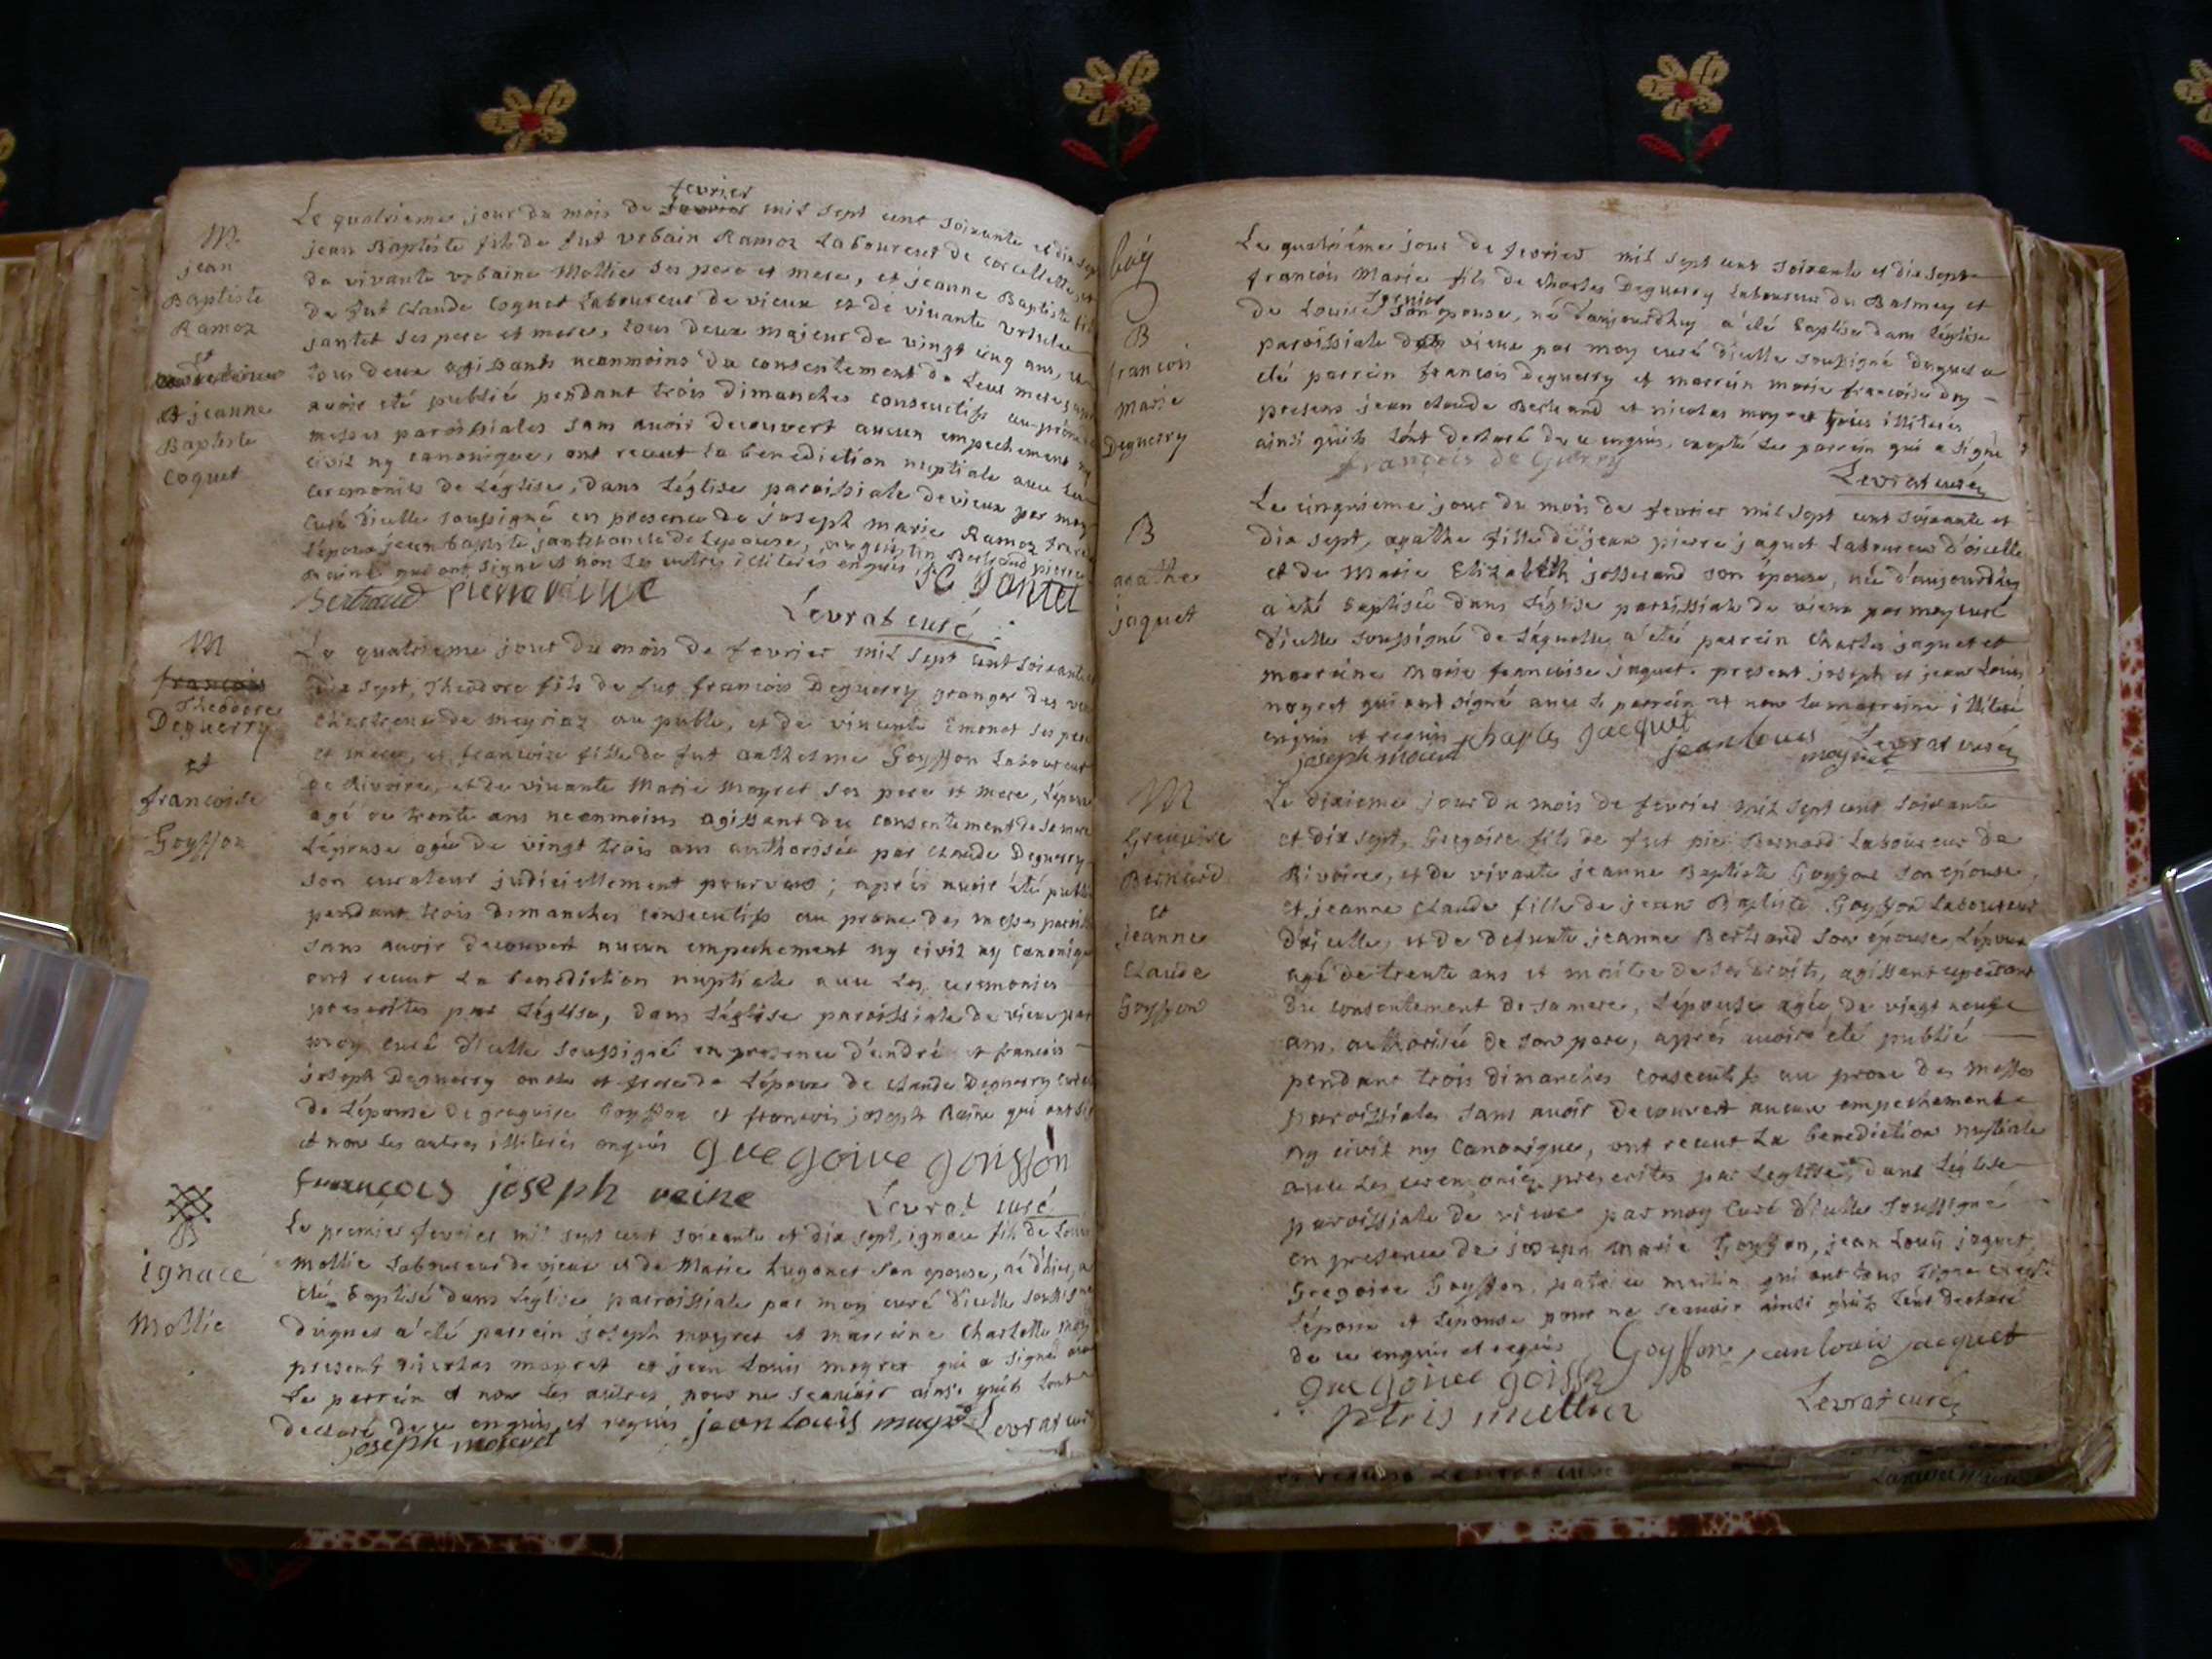 fevrier
Le quatrieme jour du mois de mil sept cent soixante et dix sept
M
jean Baptiste fils de fut vrbain Ramoz Laboureur de corcellette, et
jean
de vivante vrbaine Mollie ses pere et mere, et jeanne Baptiste fille
Baptiste
de fut Claude Coquet Laboureur de vieux et de vivante vrsule
Ramoz
jantet ses pere et mere, tous deux majeur de vingt cinq ans,
et
tous deux agissants neanmoins du consentement de Leur mere
et jeanne
avoir eté publié pendant trois dimanches consecutifs au prone
Baptiste
messes paroissiales sans avoir decouvert aucun empechement ny
Coquet
civil ny canonique, ont receut la benediction nuptiale avec Les
ceremonies de Léglise, dans Léglise paroissiale de vieux par moy
curé dicelle soussigné en presence de joseph marie Ramoz frere
Lépoux jean baptiste jantet oncle de Lepouse, augustin Bertrand pierre
qui ont signé et non Les autres illiterés enquis
Bertrand pierre JC Jantet
Levrat curé
M
Le quatrieme jour du mois de fevrier mil sept cent soixante
francois
dix sept, Theodore fils de fut francois Deguerry granger des
Theodore
Deguerry
chartreux de meyriaz au public, et de vivante Emonet ses pere
et
et mere, et francoise fille de fut anthelme Goysson Laboureur
francoise
de Rivoire, et de vivante Marie Moyret ses pere et mere, Lépoux
Goysson
agé de trente ans neanmoins agissant du consentement de sa mere
Lépouse agée de vingt trois ans authorisée par Claude Deguerry
son curateur judiciellement pourveus; aprés avoir été publié
pendant trois dimanches consecutifs au prone des messes paroiss
sans avoir decouvert aucun empechement ny civil ny canonique
ont receut La benediction nuptiale avec Les ceremonies
prescrites par Léglise, dans Léglise paroissiale de vieux par
moy curé dicelle soussigné en presence d'andré et francois
joseph Deguerry oncle et frere de Lépoux de Claude Deguerry
de Lépouse de gregoire Goysson et francois joseph Reine qui ont
et non Les autres illiterés enquis guegoire goisson
francois joseph reine Levrat curé
Le premier fevrier mil sept cent soixante et dix sept, ignace fils de
ignace
mollie Laboureur de vieux et de Marie hugonet son epouse, né d'hier, a
eté baptisé dans Léglise paroissiale par moy curé dicelle soussigné
Mollie
duquel a été parrein joseph moyret et marreine Charlotte moy
present nicolas moyret et jean Louis moyret qui a signé avec
Le parrein et non Les autres pour ne scauoir ainsi quils Lont
declaré de ce enquis et requis jean louis moyret Levrat curé
joseph moiret
Le quatriéme jour de fevrier mil sept cent soixante et dix sept
francois Marie fils de charles Deguerry Laboureur du Balmey et
de Louise son epouse, né d'aujourdhuy a été baptisé dans Léglise
B
paroissiale de vieux par moy curé dicelle soussigné duquel a
francois
été parrein francois Deguerry et marrein marie francoise
marie
presens jean claude Bertrand et nicolas moyret tous illiterés
Deguerry
ainsi quils Lont declaré de ce enquis, excepté Le parrein qui a signé
françois de Guerry
Levrat curé
Le cinquieme jour du mois de fevrier mil sept cent soixante et
B
dix sept, agathe fille de jean pierre jaquet Laboureur d'oicelle
agathe
et de Marie Elizabeth josserand son épouse, née d'aujourdhuy
jaquet
a été baptisée dans Léglise paroissiale de vieux par moy curé
dicelle soussigné de Laquelle a été parrein Charles jaquet et
marreine marie francoise jaquet. present joseph et jean Louis
moyret qui ont signé avec Le parrein et non La marreine illiteré
enquis et requis charles jacquet
joseph moiret jean louis moyret Levrat curé
M
Le dixieme jour du mois de fevrier mil sept cent soixante
Gregoire
et dix sept, Gregoire fils de fut Bernard Laboureur de
Bernard
Rivoire, et de vivante jeanne Baptiste Goysson son epouse,
et
et jeanne claude fille de jean Baptiste Goysson Laboureur
jeanne
d'oicelle, et de defunte jeanne Bertrand son épouse, Lépoux
Claude
agé de trente ans et maitre de ses droits, agissant cependant
Goysson
du consentement de sa mere, Lépouse agée de vingt neufe
ans, authorisé de son pere, aprés avoir été publié
pendant trois dimanches consecutifs au prone des messes
paroissiales sans avoir decouvert aucun empechement
ny civil ny canonique, ont receut La benediction nuptiale
avec Les ceremonies prescrites par Leglise, dans Léglise
paroissiale de vieux par moy curé dicelle soussigné
en presence de joseph marie Goysson, jean Louis jaquet,
Gregoire Goysson, patrice martin qui ont tous signé excepté
Lépoux et Lépouse pour ne scavoir ainsi quils Lont declaré
de ce enquis et requis Goysson jean louis jacquet
guegoire goisson
Levrat curé